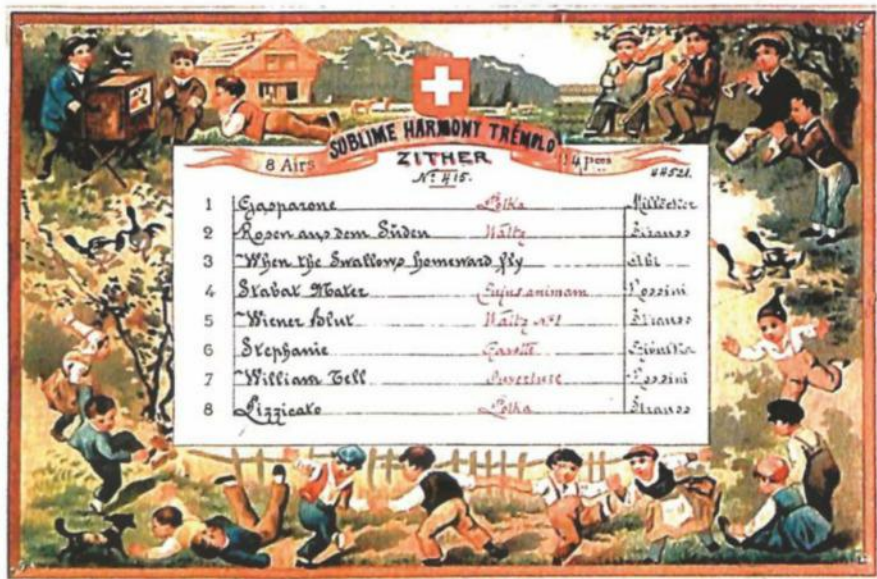 SUBLIME HARMONY TRÉMOLO
8 Airs ZITHER 4 pces
Nº 415. 44521.
1 Gasparone Polka Millöcker
2 Rosen aus dem Süden Waltz Strauss
3 When the Swallows homeward fly Abt
4 Stabat Mater Cujus animam Rossini
5 Wiener Blut Waltz Nº1 Strauss
6 Stephanie Gavotte Czibulka
7 William Tell Ouverture Rossini
8 Pizzicato Polka Strauss